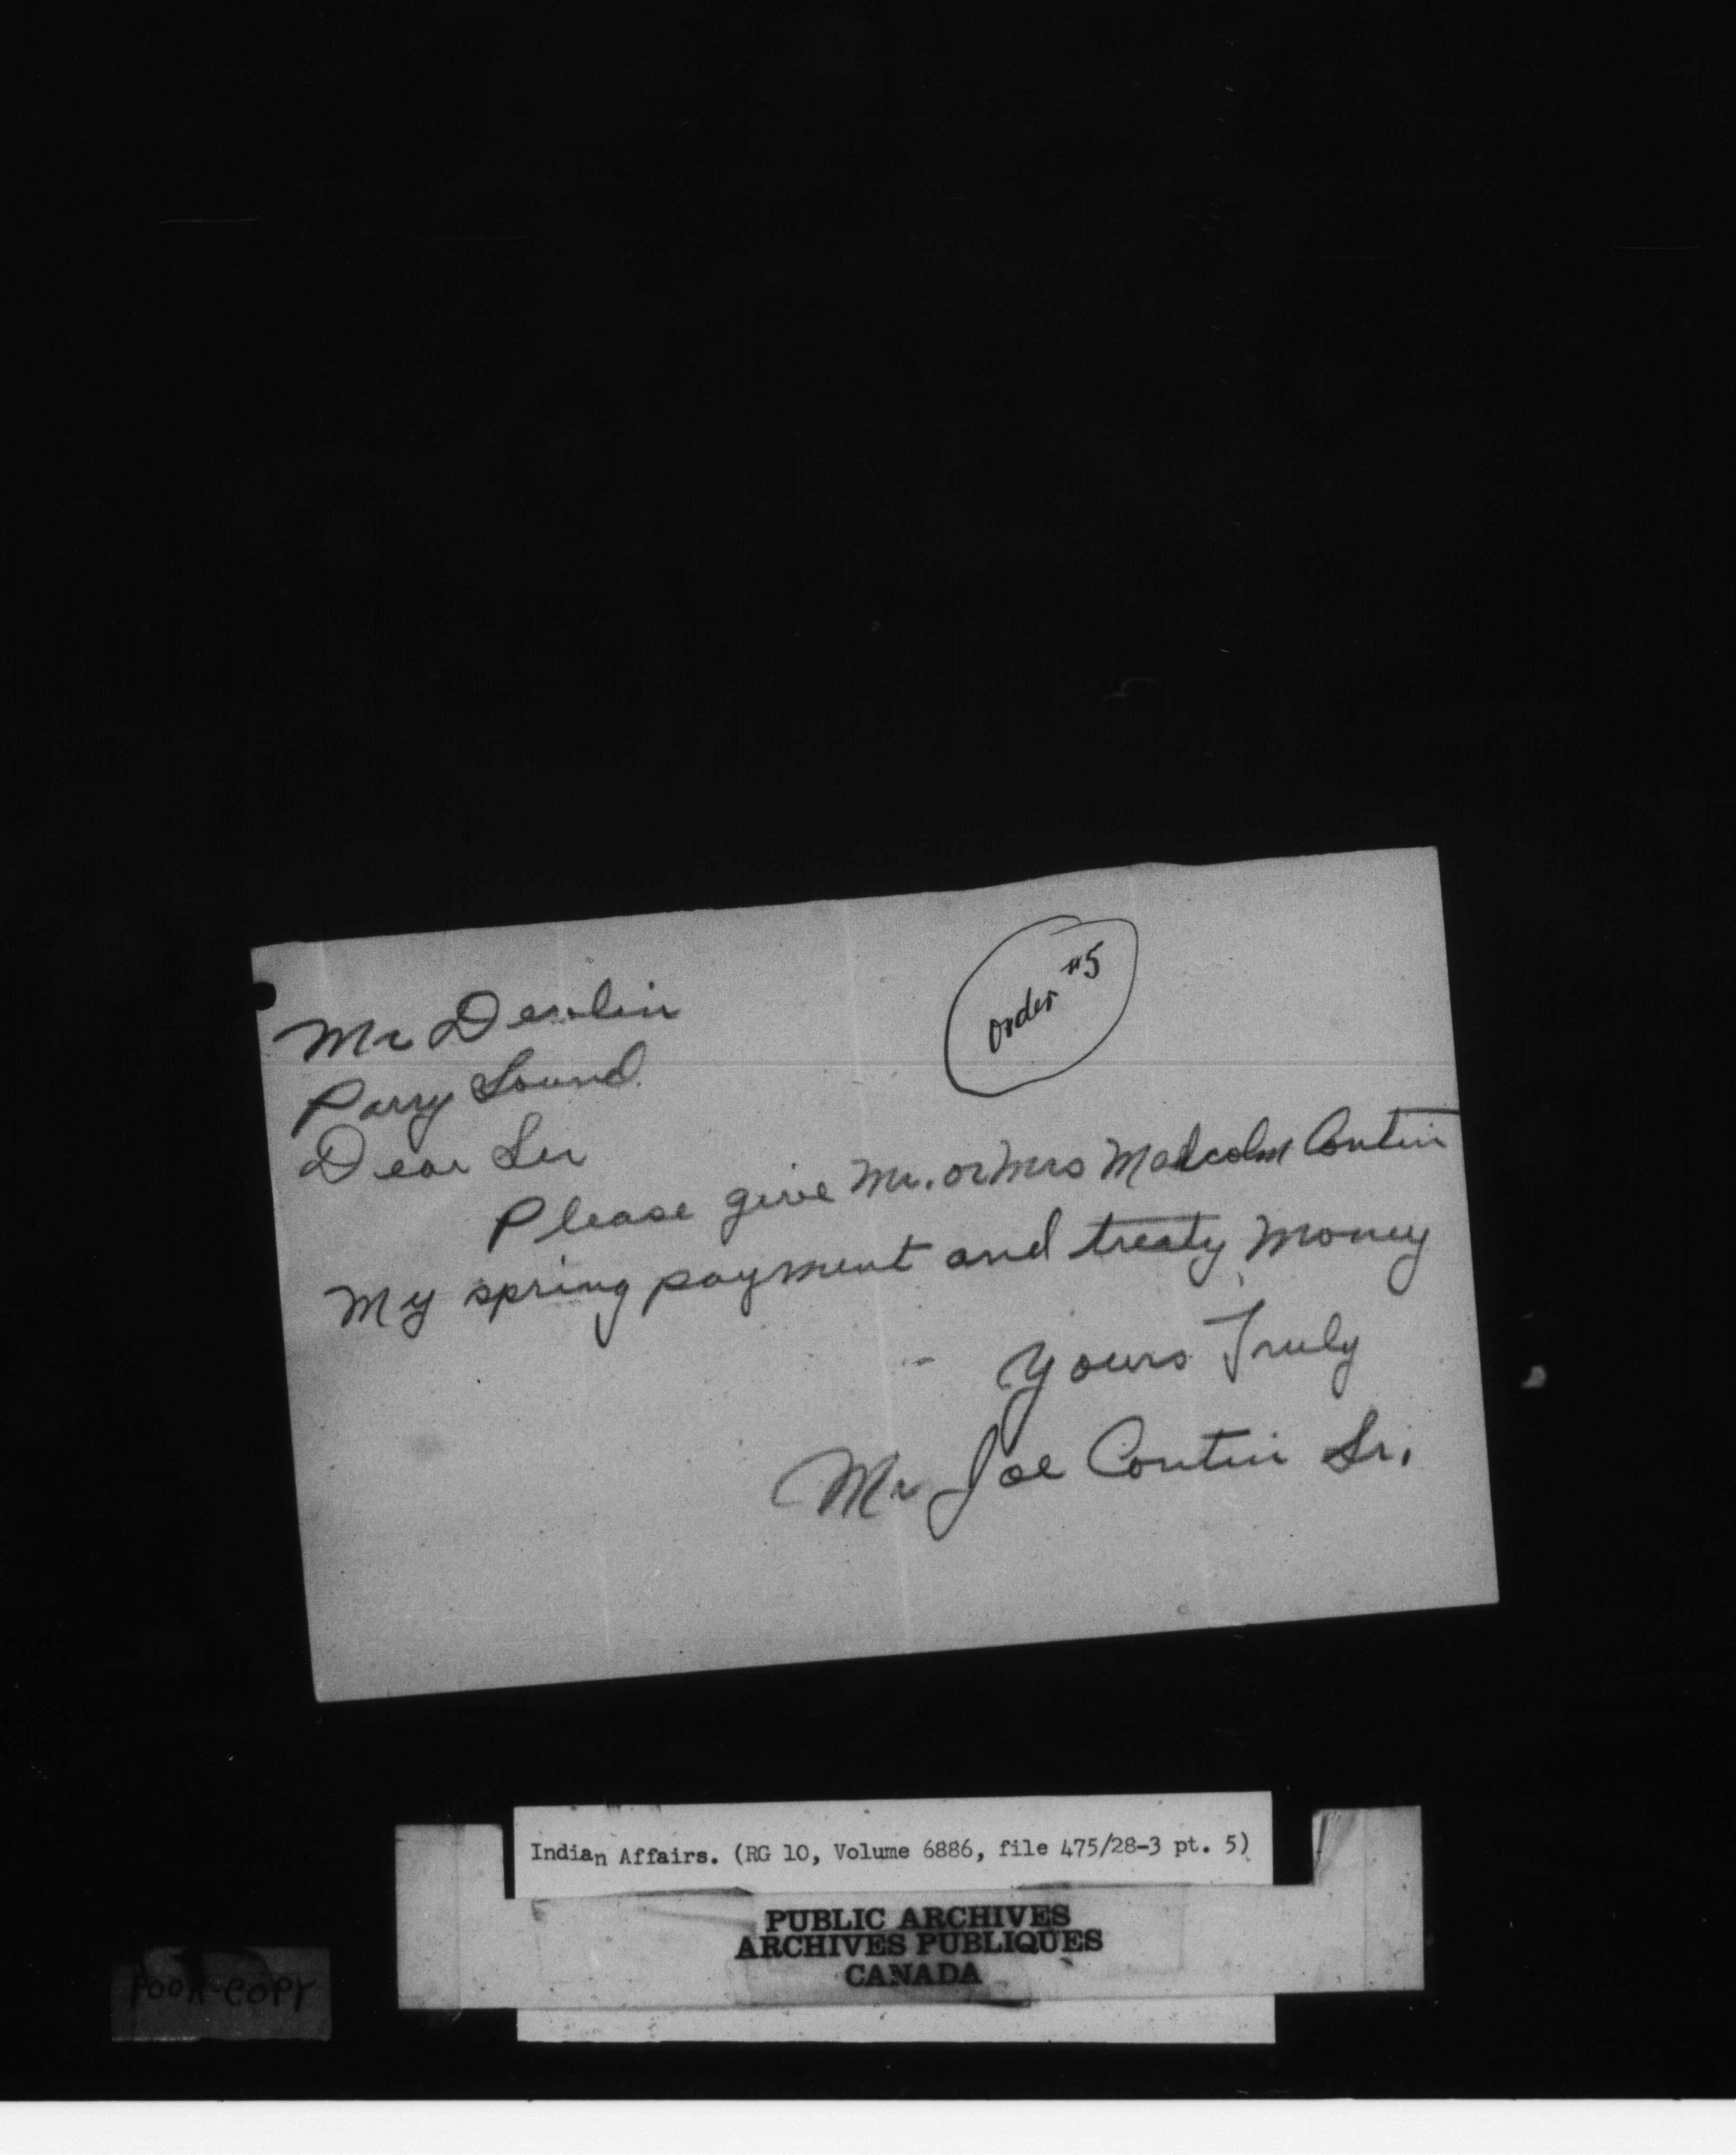 Order #5
Mr Devlin
Parry Sound.
Dear Sir
Please give Mr. or Mrs Malcolm Contin
My spring payment and treaty Money
Yours Truly
Mr Joe Contin Sr.
Indian Affairs. (RG 10, Volume 6886, file 475/28-3 pt. 5)
PUBLIC ARCHIVES
ARCHIVES PUBLIQUES
CANADA
POOR COPY